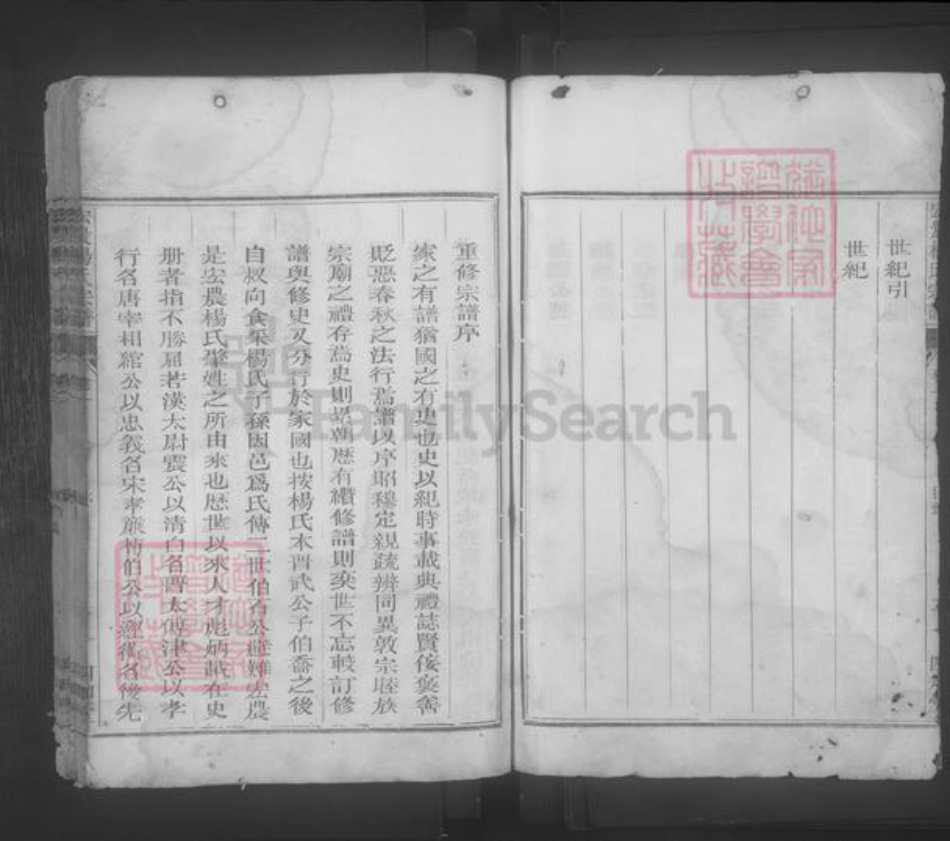 世紀引
世紀
重修宗譜序
家之有譜猶國之有史也史以紀時事載典禮誌賢佞褒善
貶惡春秋之法行焉譜以序昭穆定親疏辨同異敦宗睦族
宗廟之禮存焉史則累朝歴有纘修譜則奕世不忘較訂修
譜與修史又分行於家國也按楊氏本晋武公子伯喬之後
自叔向食采楊氏子孫因邑爲氏傳二世伯石公避難宏農
是宏農楊氏肇姓之所由來也歴世以來人才彪炳載在史
册者指不勝屈若漢太尉震公以清白名晋太傅津公以孝
行名唐宰相綰公以忠義名宋孝廉時伯公以經術名後先
FamilySearch